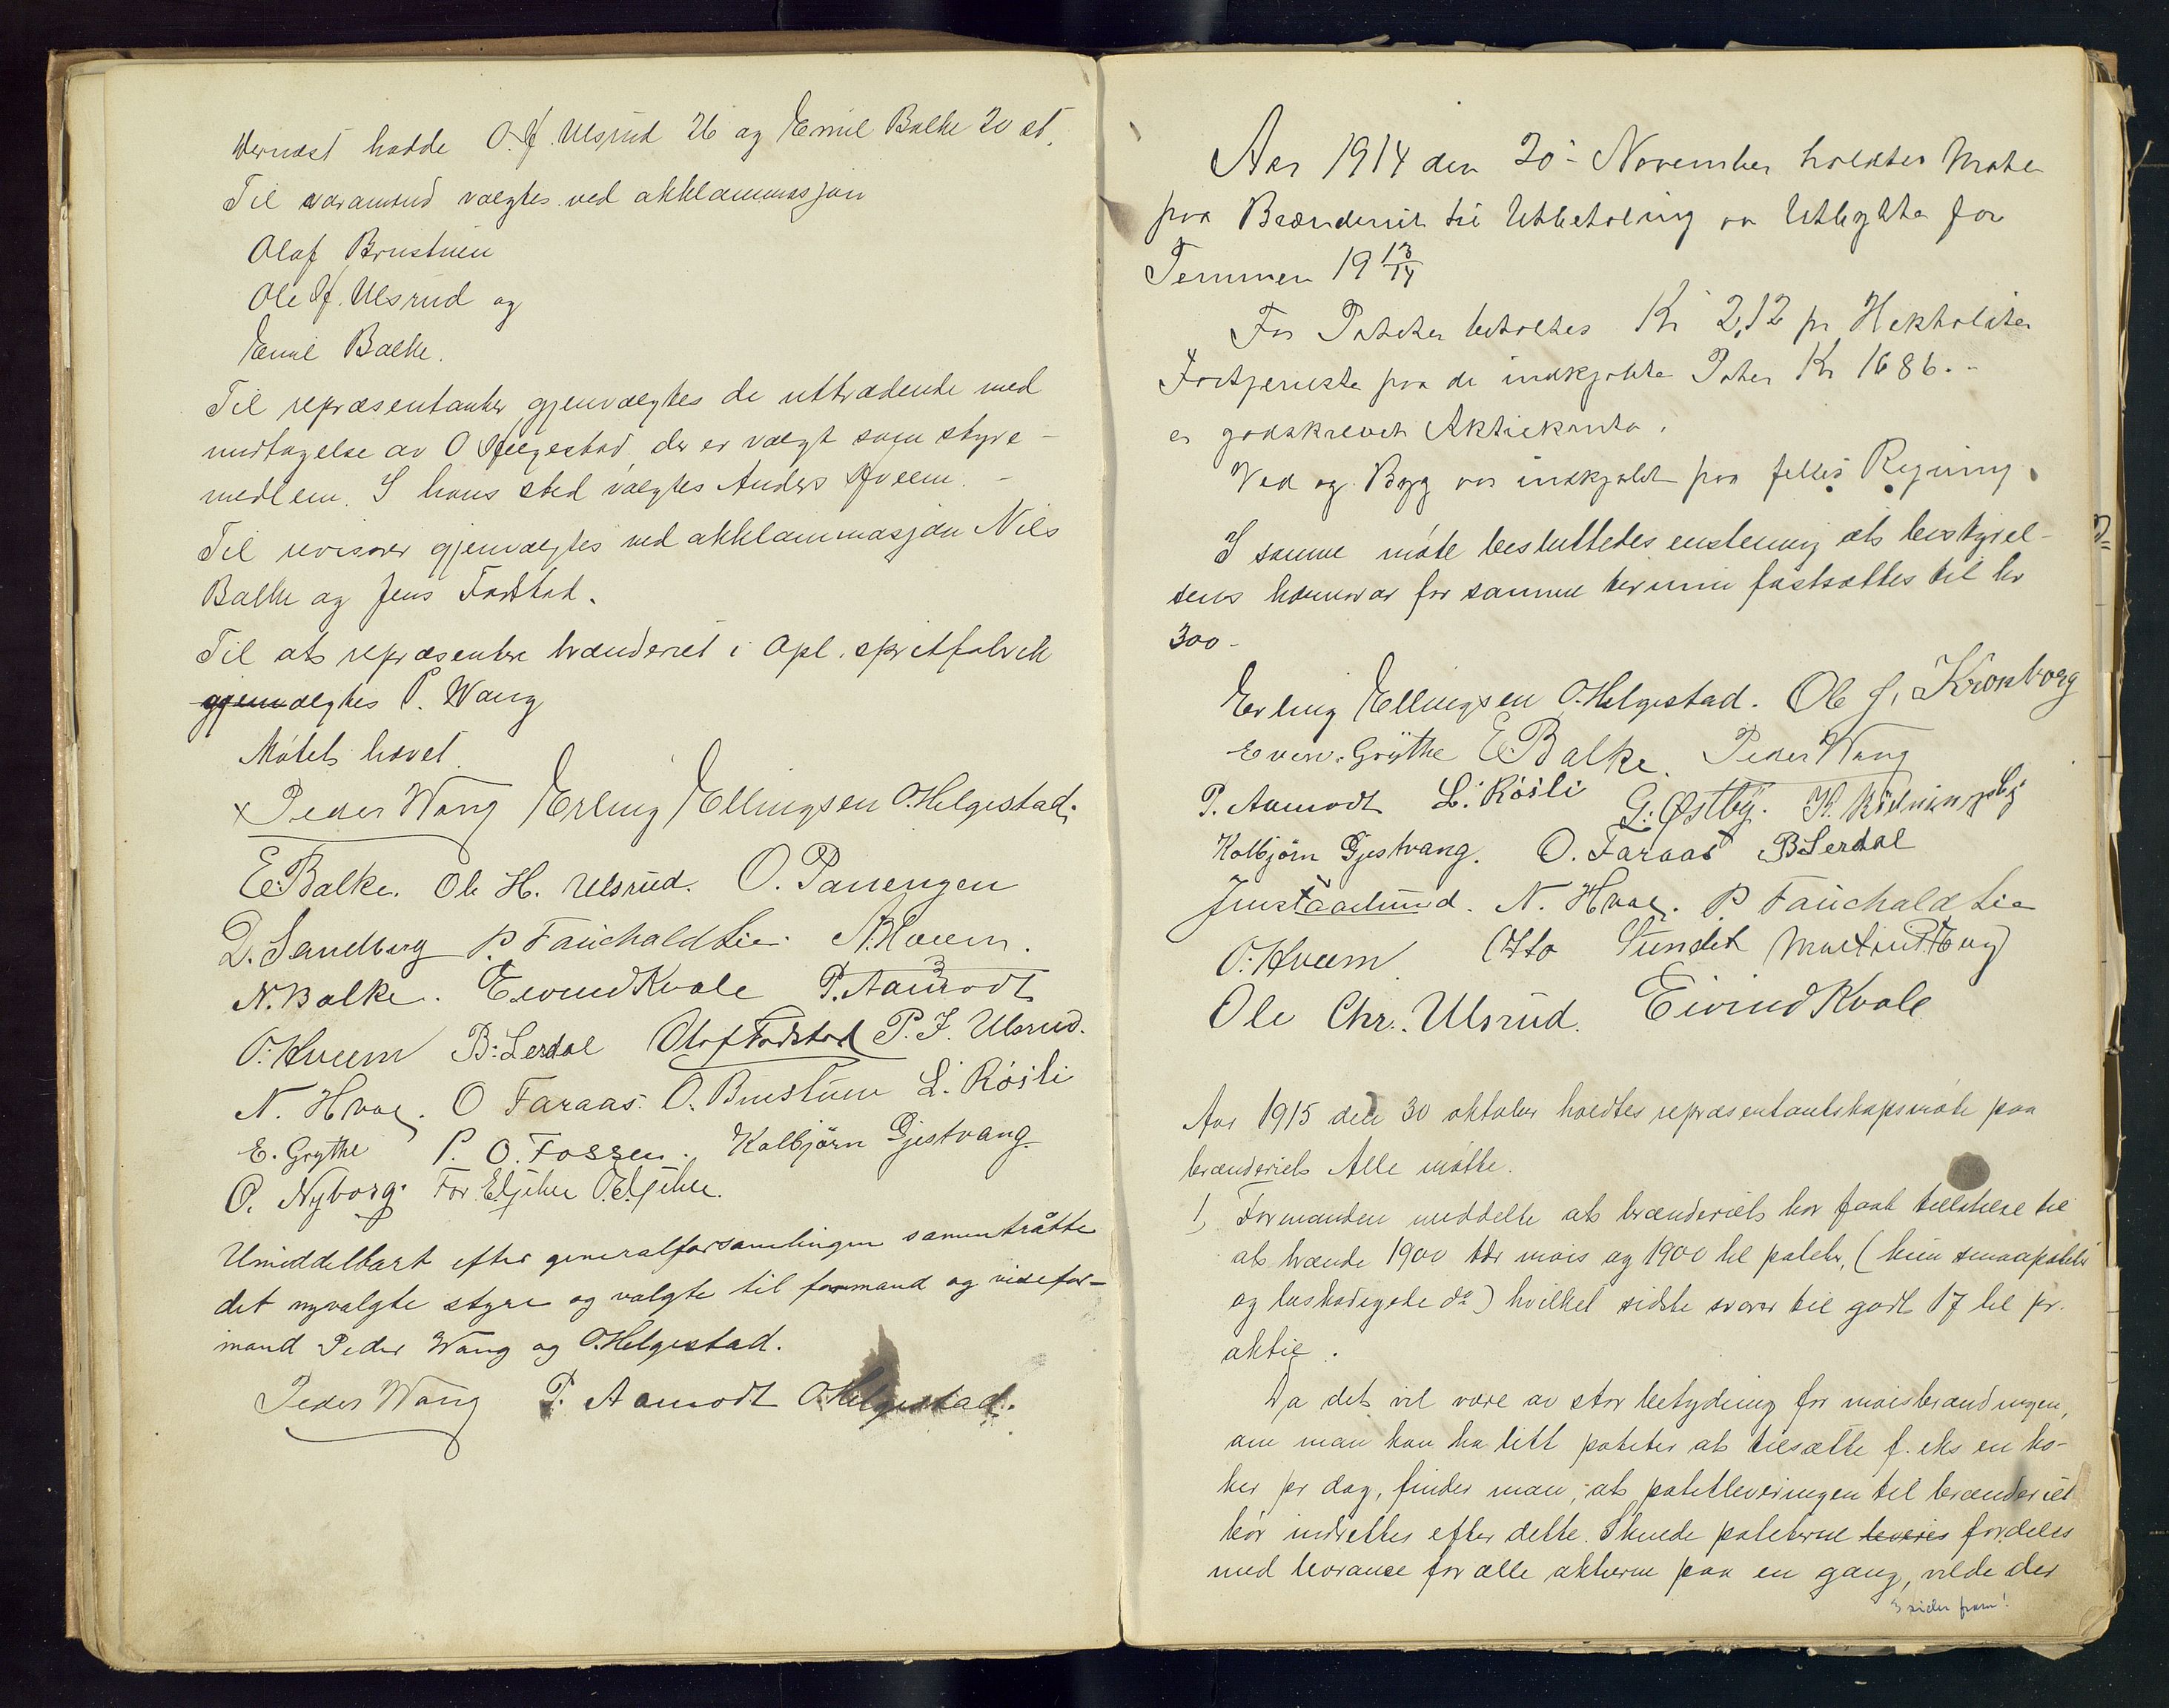 Dernæst hadde O. H. Ulsrud 26 og Emil Balke 20 st.
Til varamænd valgtes ved akklammasjon
Olaf Brustuen
Ole H. Ulsrud og
Emil Balke.
Til repræsentanter gjenvalgtes de uttrædende med
undtagelse av O Helgestad, der er valgt som styre-
medlem. I hans sted valgtes Anders Hveem. -
Til revisorer gjenvalgtes ved akklammasjon Nils
Balke og Jens Fodstad.
Til at repræsentere brænderiet i Opl. spritfabrik
gjenvalgtes P. Wang
Møtet hævet.
Peder Wang Erling Ellingsen O. Helgestad.
E. Balke. Ole H. Ulsrud. O. Panengen
D. Sandberg P. Fauchald Lie. A. Hveem.
N. Balke. Eivind Kvale P. Aamodt
O. Hveem B. Lerdal Olaf Fodstad P. J. Ulsrud.
N. Hval. O Faraas. O. Brustuen L. Røisli
E. Grythe P. O. Fossen. Kolbjørn Gjestvang.
O. Nyborg. For E. Gjehle O. E. Gjehle.
Umiddelbart efter generalforsamlingen sammentrådte
det nyvalgte styre og valgte til formand og visefor-
mand Peder Wang og O. Helgestad.
Peder Wang P. Aamodt O. Helgestad.
Aar 1914 den 20- November holdtes Møte
paa Brænderiet til Utbetaling av Utbytte for
Terminen 19 13/14
For Poteter betaltes Kr 2,12 pr Hektoliter
Fortjeneste paa de indkjøpte Poteter Kr 1686.-
er godskrevet Aktiekonto.
Ved og Byg var indkjøpt paa felles Regning.
I samme møte besluttedes enstemmig at bestyrel-
sens honorar for samme termin fastsættes til kr
300-
Erling Ellingsen O. Helgestad. Ole J. Kronborg
Even. Grythe E Balke. Peder Wang
P. Aamodt L. Røisli G. Østby. K. Kildningsby
Kolbjørn Gjestvang. O. Faraas B Lerdal
Jens Faarlund. N. Hval. P Fauchald Lie
O. Hveem Otto Sundet Martin Haug
Ole Chr. Ulsrud. Eivind Kvale
Aar 1915 den 30 oktober holdtes repræsentantskapsmøte paa
brænderiet. Alle møtte.
1, Formanden meddelte at brænderiet har faat tilladelse til
at brænde 1900 tdr mais og 1900 hl poteter, (kun smaapoteter
og beskadigede do) hvilket sidste svarer til godt 17 hl pr.
aktie.
Da det vil være av stor betydning for maisbrændingen,
om man kan ha litt poteter at tilsætte f. eks en ko-
ker pr dag, finder man, at potetleveringen til brænderiet
bør indrettes efter dette. Skulde poteterne leveres fordeles
med leverance for alle aktierne paa en gang, vilde der
3 sider fram!